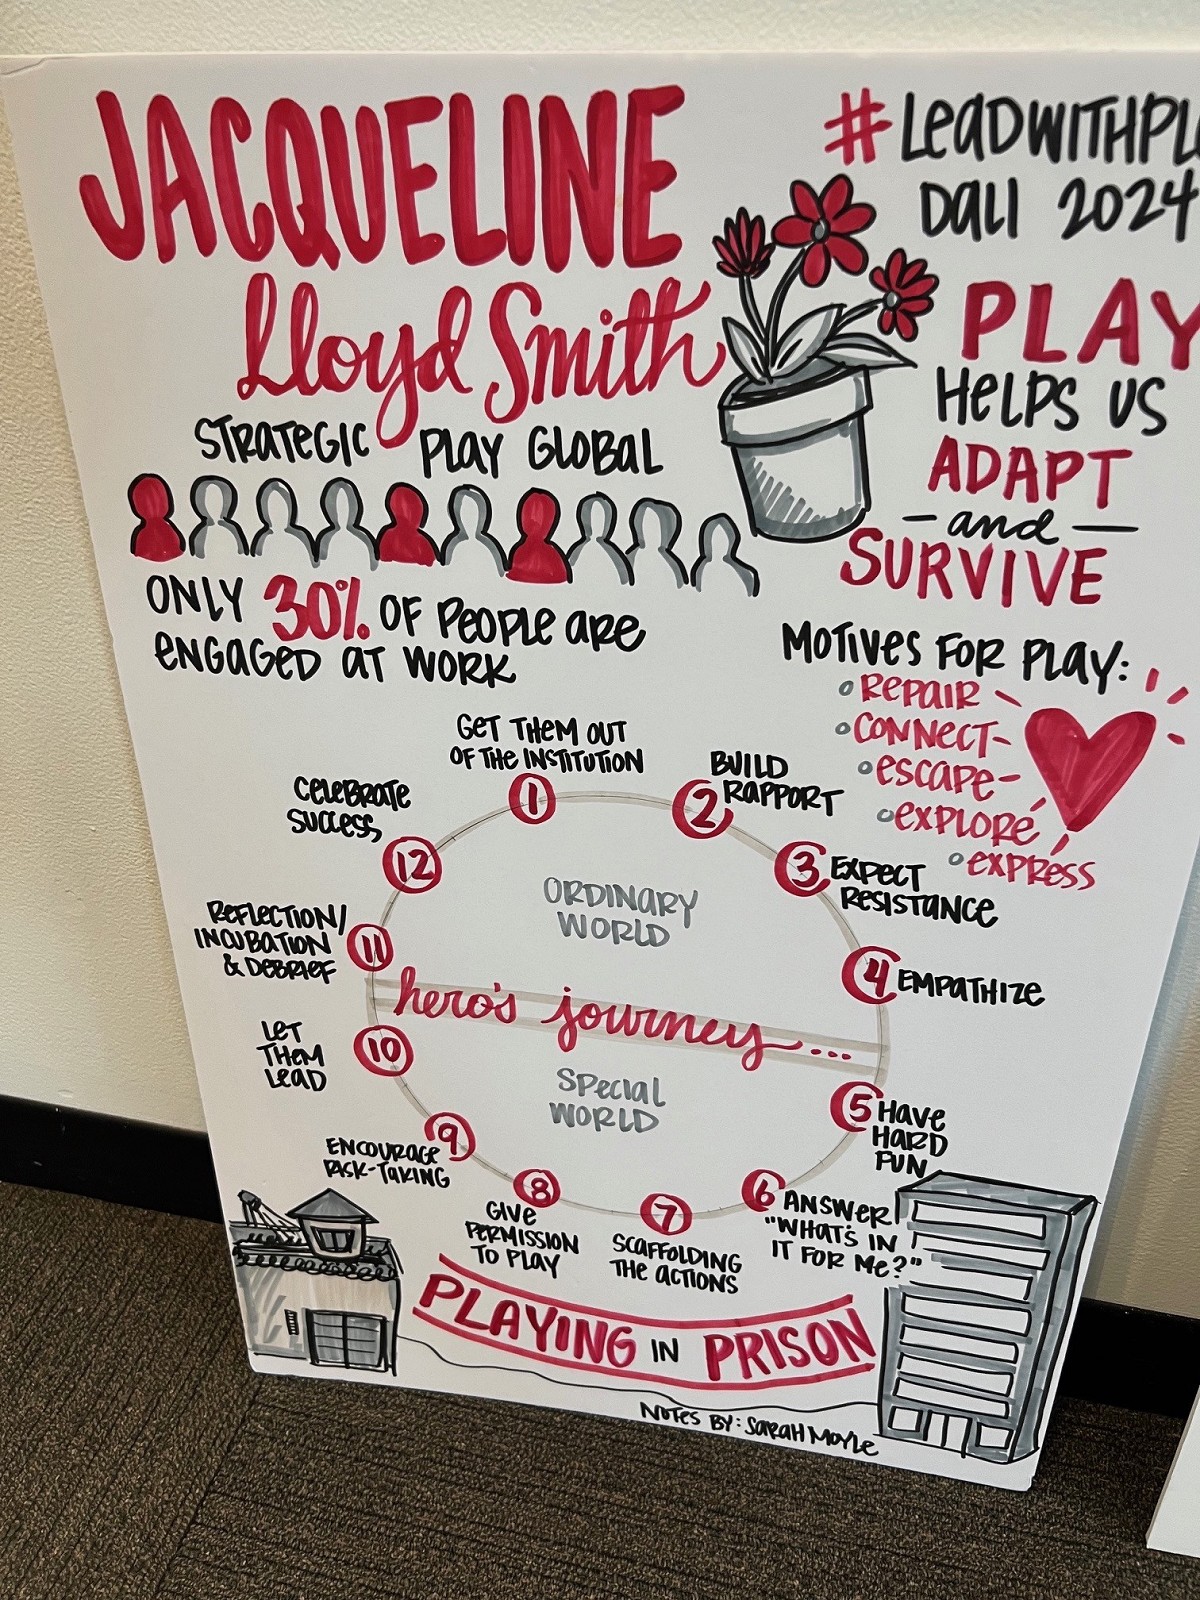 JACQUELINE
Lloyd Smith
STRATEGIC PLAY GLOBAL
ONLY 30% OF PEOPLE ARE
ENGAGED AT WORK
#LEADWITHPL
DALI 2024
PLAY
HELPS US
ADAPT
- and -
SURVIVE
MOTIVES FOR PLAY:
REPAIR
CONNECT
ESCAPE
EXPLORE
EXPRESS
1
GET THEM OUT
OF THE INSTITUTION
2
BUILD
RAPPORT
3
EXPECT
RESISTANCE
4
EMPATHIZE
5
HAVE
HARD
FUN
6
ANSWER
"WHAT'S IN
IT FOR ME?"
7
SCAFFOLDING
THE ACTIONS
8
GIVE
PERMISSION
TO PLAY
9
ENCOURAGE
RISK-TAKING
10
LET
THEM
LEAD
11
REFLECTION/
INCUBATION
& DEBRIEF
12
CELEBRATE
SUCCESS
ORDINARY
WORLD
hero's journey...
SPECIAL
WORLD
PLAYING IN PRISON
NOTES BY: SARAH MOYLE